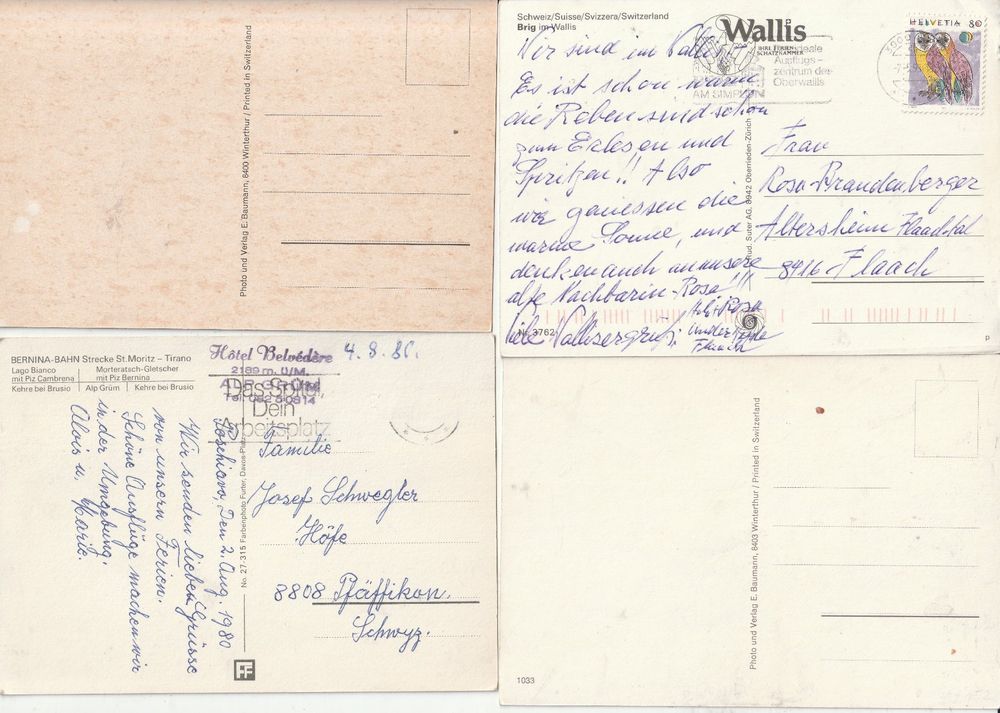 Photo und Verlag E. Baumann, 8400 Winterthur / Printed in Switzerland
Schweiz/Suisse/Svizzera/Switzerland
Brig im Wallis
Wallis
IHRE FERIEN-
SCHATZKAMMER
ideale
Ausflugs-
zentrum des
Oberwallis
AM SIMPLON
HELVETIA 80
Wir sind im Wallis
Es ist schon warm
die Reben sind schon
zum Erlesen und
Spritzen!! Also
wir geniessen die
warme Sonne, und
denken auch an unsere
alte Nachbarin Rosa!!!
Viele Wallisergrüsse
Rosa
Flaach
Nr. 3762
Rud. Suter AG, 8942 Oberrieden-Zürich
Frau
Rosa Brandenberger
Altersheim Flaachtal
8416 Flaach
BERNINA-BAHN Strecke St. Moritz – Tirano
Lago Bianco
mit Piz Cambrena
Morteratsch-Gletscher
mit Piz Bernina
Kehre bei Brusio
Alp Grüm
Kehre bei Brusio
Hôtel Belvédère
2189 m. Ü/M.
ALP GRÜM
Tel. 082 5 0314
4. 8. 80.
Das Spital,
Dein
Arbeitsplatz
Poschiavo, Den 2. Aug. 1980
Wir senden lieben Grüsse
von unsern Ferien.
Schöne Ausflüge machen wir
in der Umgebung.
Alois u. Marie.
No. 27-315 Farbenphoto Furter, Davos-Platz
FF
Familie
Josef Schwegler
Höfe
8808 Pfäffikon.
Schwyz.
Photo und Verlag E. Baumann, 8403 Winterthur / Printed in Switzerland
1033